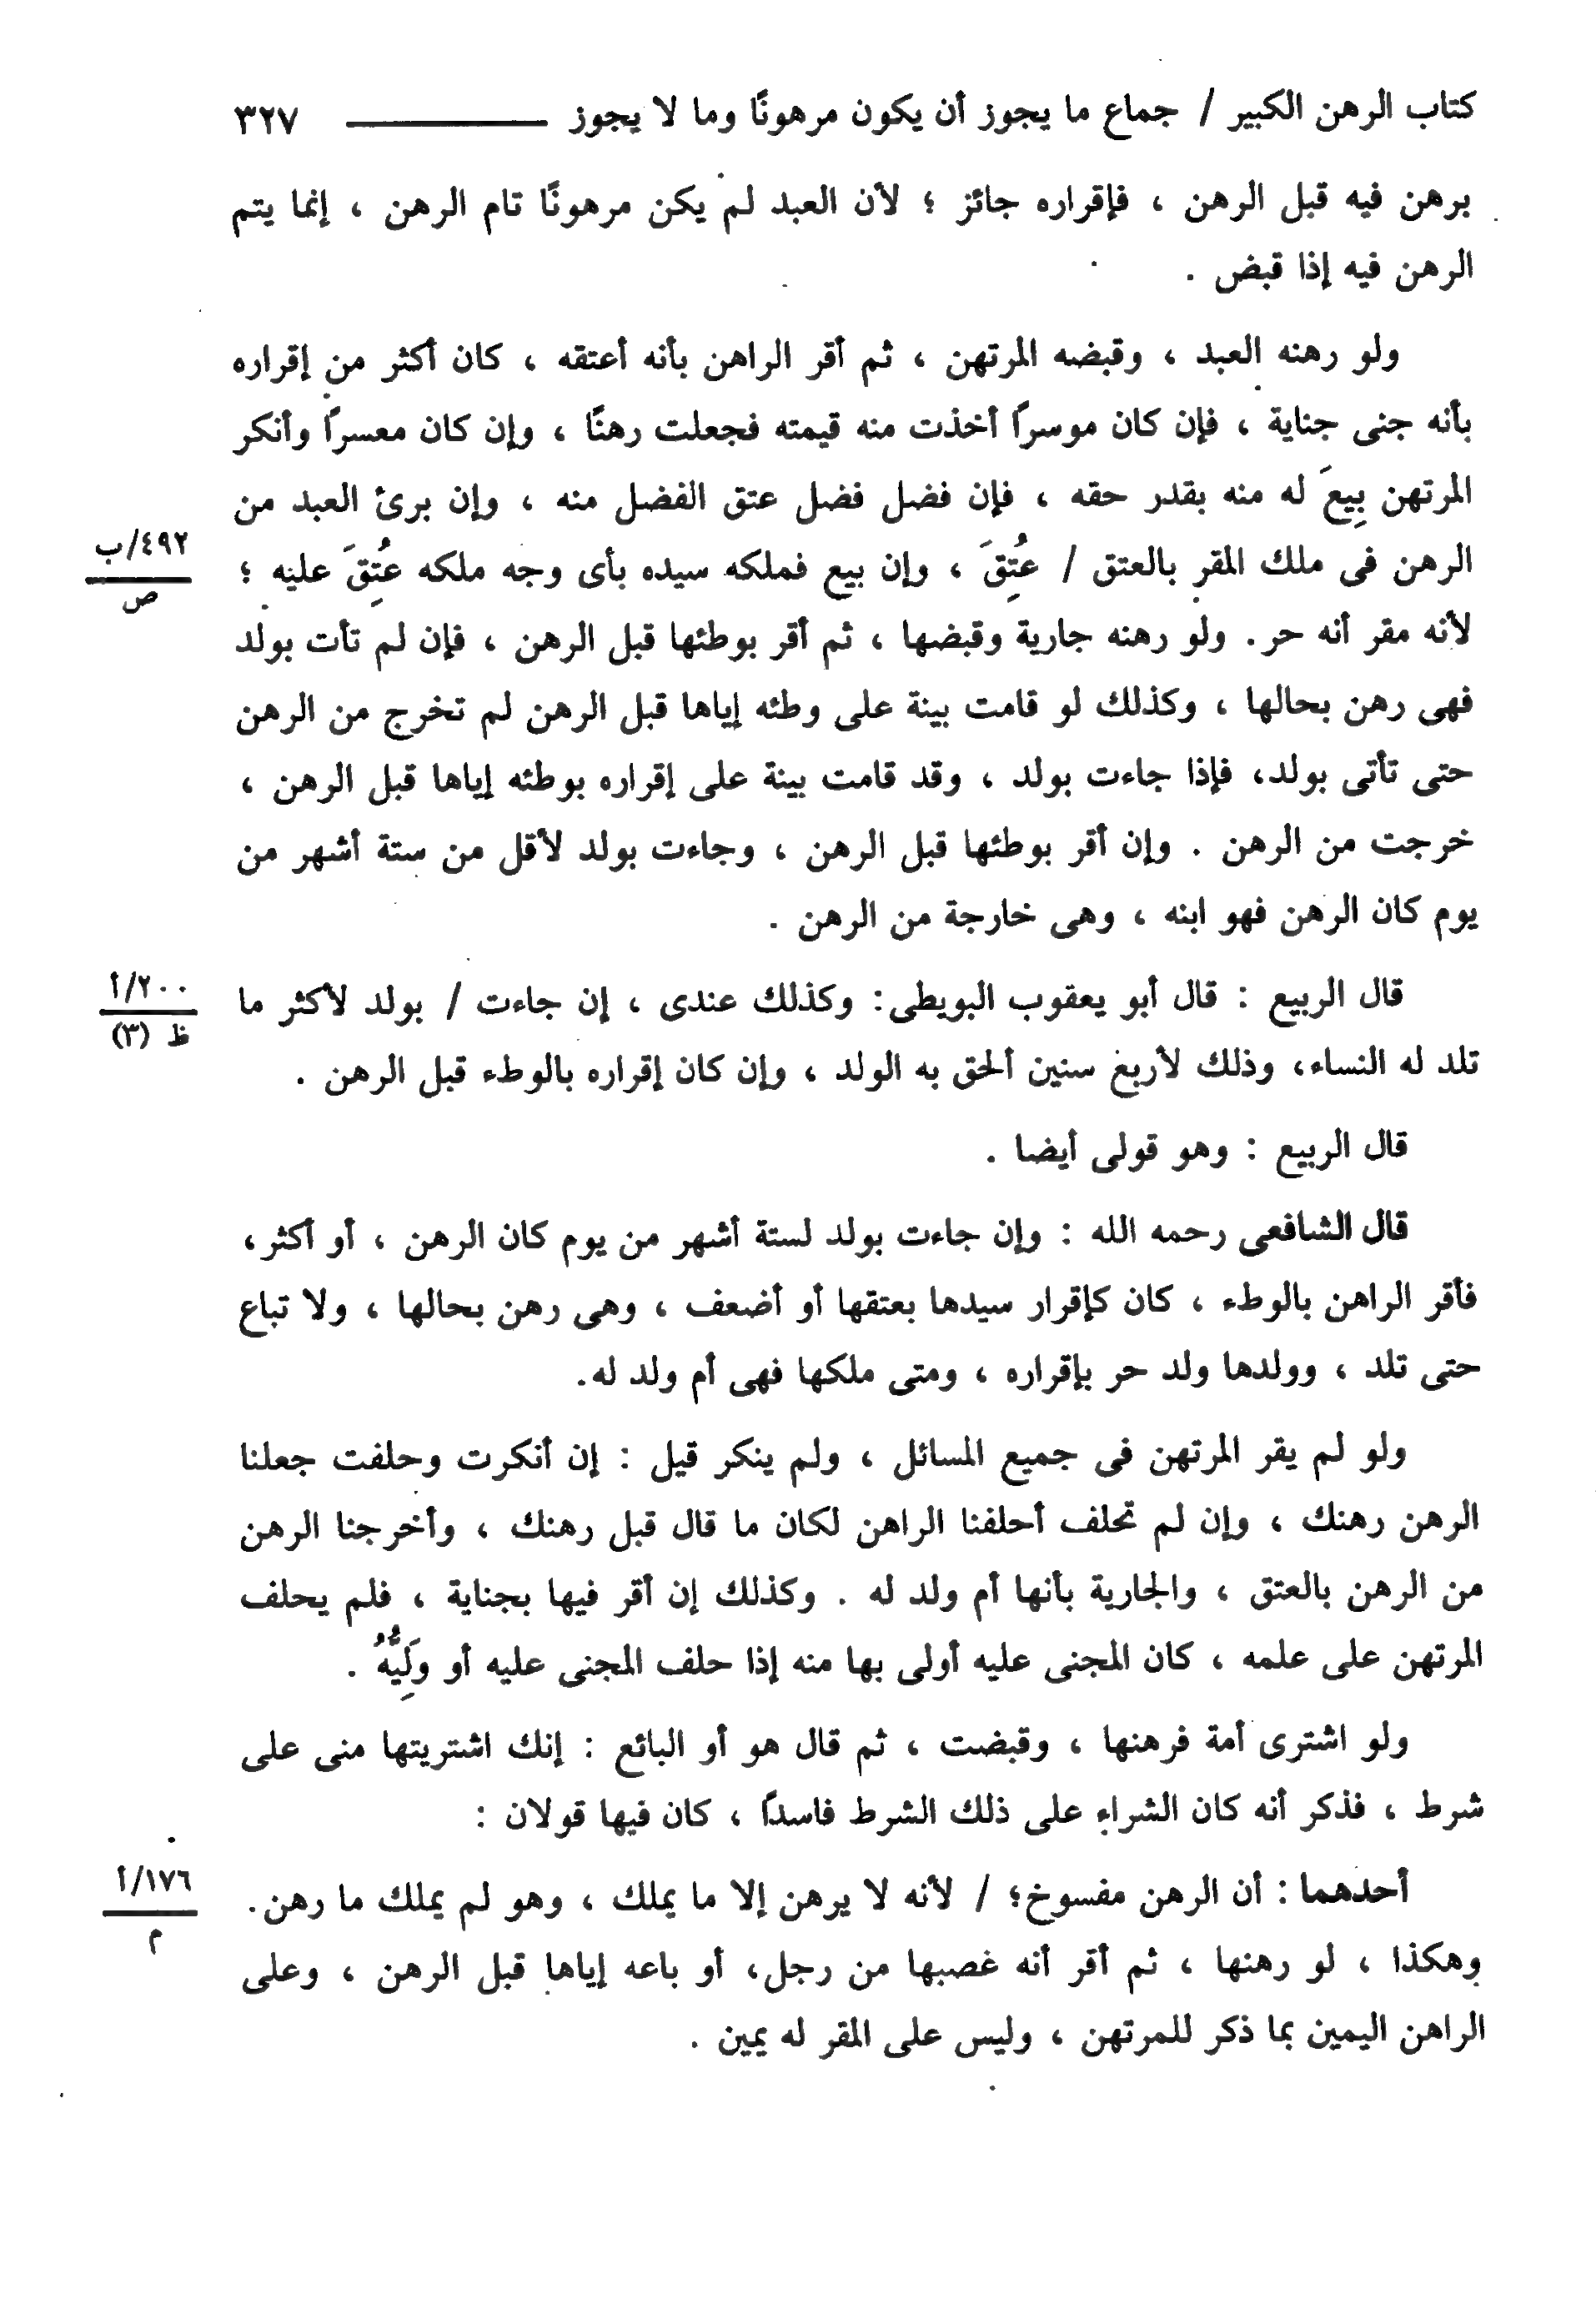 كتاب الرهن الكبير / جماع ما يجوز أن يكون مرهونًا وما لا يجوز ــــــــــــ ٣٢٧
برهن فيه قبل الرهن ، فإقراره جائز ؛ لأن العبد لم يكن مرهونًا تام الرهن ، إنما يتم
الرهن فيه إذا قبض .
ولو رهنه العبد ، وقبضه المرتهن ، ثم أقر الراهن بأنه أعتقه ، كان أكثر من إقراره
بأنه جنى جناية ، فإن كان موسرًا أخذت منه قيمته فجعلت رهنًا ، وإن كان معسرًا وأنكر
المرتهن بِيعَ له منه بقدر حقه ، فإن فضل فضل عتق الفضل منه ، وإن برئ العبد من
الرهن فى ملك المقر بالعتق / عُتِقَ ، وإن بيع فملكه سيده بأى وجه ملكه عُتِقَ عليه ؛
٤٩٢/ب
ص
لأنه مقر أنه حر. ولو رهنه جارية وقبضها ، ثم أقر بوطئها قبل الرهن ، فإن لم تأت بولد
فهى رهن بحالها ، وكذلك لو قامت بينة على وطئه إياها قبل الرهن لم تخرج من الرهن
حتى تأتى بولد، فإذا جاءت بولد ، وقد قامت بينة على إقراره بوطئه إياها قبل الرهن ،
خرجت من الرهن . وإن أقر بوطئها قبل الرهن ، وجاءت بولد لأقل من ستة أشهر من
يوم كان الرهن فهو ابنه ، وهى خارجة من الرهن .
قال الربيع : قال أبو يعقوب البويطى: وكذلك عندى ، إن جاءت / بولد لأكثر ما
٢٠٠/أ
ظ (٣)
تلد له النساء، وذلك لأربع سنين ألحق به الولد ، وإن كان إقراره بالوطء قبل الرهن .
قال الربيع : وهو قولى أيضا .
قال الشافعى رحمه الله : وإن جاءت بولد لستة أشهر من يوم كان الرهن ، أو أكثر،
فأقر الراهن بالوطء ، كان كإقرار سيدها بعتقها أو أضعف ، وهى رهن بحالها ، ولا تباع
حتى تلد ، وولدها ولد حر بإقراره ، ومتى ملكها فهى أم ولد له.
ولو لم يقر المرتهن فى جميع المسائل ، ولم ينكر قيل : إن أنكرت وحلفت جعلنا
الرهن رهنك ، وإن لم تحلف أحلفنا الراهن لكان ما قال قبل رهنك ، وأخرجنا الرهن
من الرهن بالعتق ، والجارية بأنها أم ولد له . وكذلك إن أقر فيها بجناية ، فلم يحلف
المرتهن على علمه ، كان المجنى عليه أولى بها منه إذا حلف المجنى عليه أو وَلِيُّهُ .
ولو اشترى أمة فرهنها ، وقبضت ، ثم قال هو أو البائع : إنك اشتريتها منى على
شرط ، فذكر أنه كان الشراء على ذلك الشرط فاسدًا ، كان فيها قولان :
أحدهما : أن الرهن مفسوخ؛ / لأنه لا يرهن إلا ما يملك ، وهو لم يملك ما رهن.
١٧٦/أ
م
وهكذا ، لو رهنها ، ثم أقر أنه غصبها من رجل، أو باعه إياها قبل الرهن ، وعلى
الراهن اليمين بما ذكر للمرتهن ، وليس على المقر له يمين .